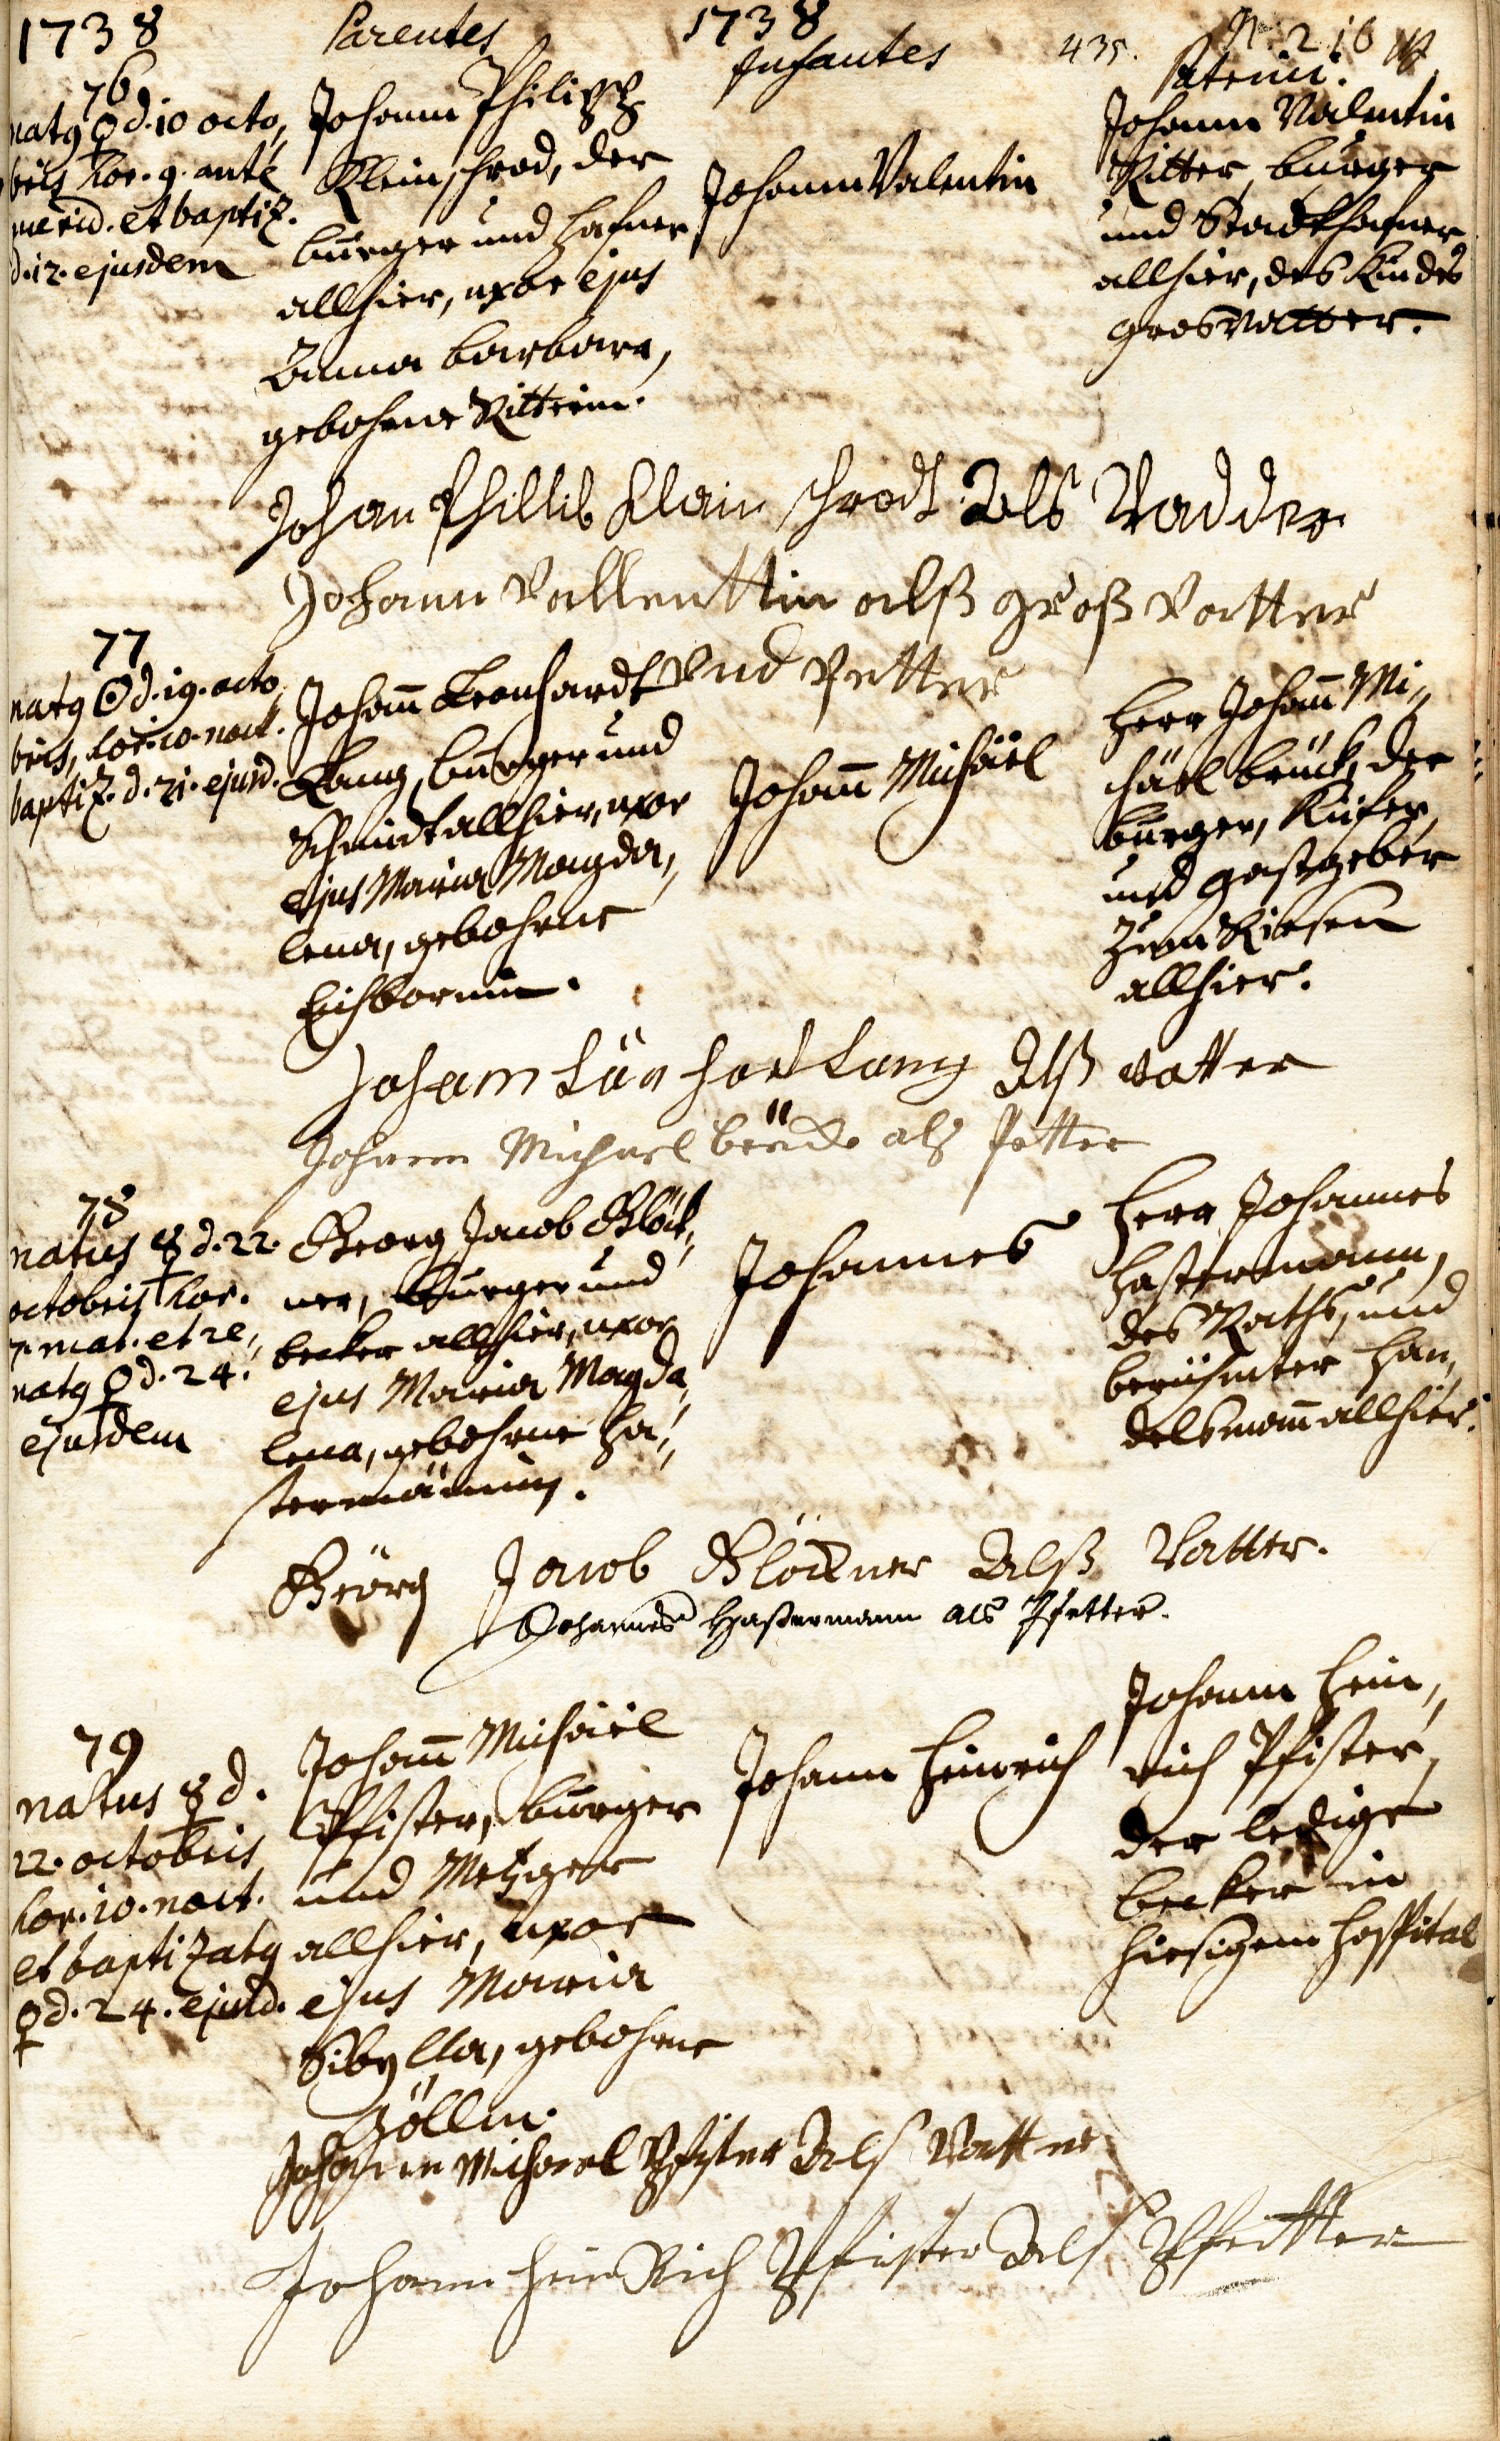 1738 Parentes 1738 Infantes 435. No. 216 Patrini.
76
natg ♀ d. 10 octo„
bris hor. 9. ante
merid. et baptiz.
d. 12. ejusdem
Johann Philipp
Kleinschrod, der
burger und hafner
allhier, uxor ejus
Anna barbara,
gebohrne Ritterin.
Johann Valentin
Johann Valentin
Ritter, burger
und Stadthafner
allhier, des Kindes
grosvatter.
Johan Phillib Klain schrodt Als Vadder
Johann Vallenttin alß groß vatter
und Petter
77
natg ☉ d. 19. octo„
bris, hor. 10. noct.
baptiz. d. 21. ejusd.
Joham̅ Leonhardt
Lang, burger und
Schmidt allhier, uxor
ejus Maria Magda„
lena, gebohrne
Eichbornin.
Joham̅ Michäel
Herr Joham̅ Mi„
chäel brück, der
burger, Küfer,
und gastgeber
zum Riesen
allhier.
Joham Län hart Lang Alß vatter
Johann Michael brück als Petter
78
natus ☿ d. 22.
octobris hor.
7. mat. et re„
natg ♀ d. 24.
ejusdem
Georg Jacob Glöck„
ner, burger und
becker allhier, uxor
ejus Maria Magda„
lena, gebohrne Ha„
stermännin.
Johannes
Herr Johannes
Hastermann,
des Raths, und
berühmter Han„
delsmam̅ allhier.
Geörg Jacob Glöckner Alß Vatter.
Johannes Hastermann als Pfetter.
79
natus ☿ d.
22. octobris
hor. 10. noct.
et baptizatg
♀ d. 24. ejusd.
Joham̅ Michäel
Pfister, burger
und Metzger
allhier, uxor
ejus Maria
Sibylla, gebohrne
Zöllin.
Johann Heinrich
Johann Hein„
rich Pfister,
der ledige
becker in
hiesigem Hospital
Johann Michael Pfister Als Vatter
Johann HeinRich Pfister Als Pfetter